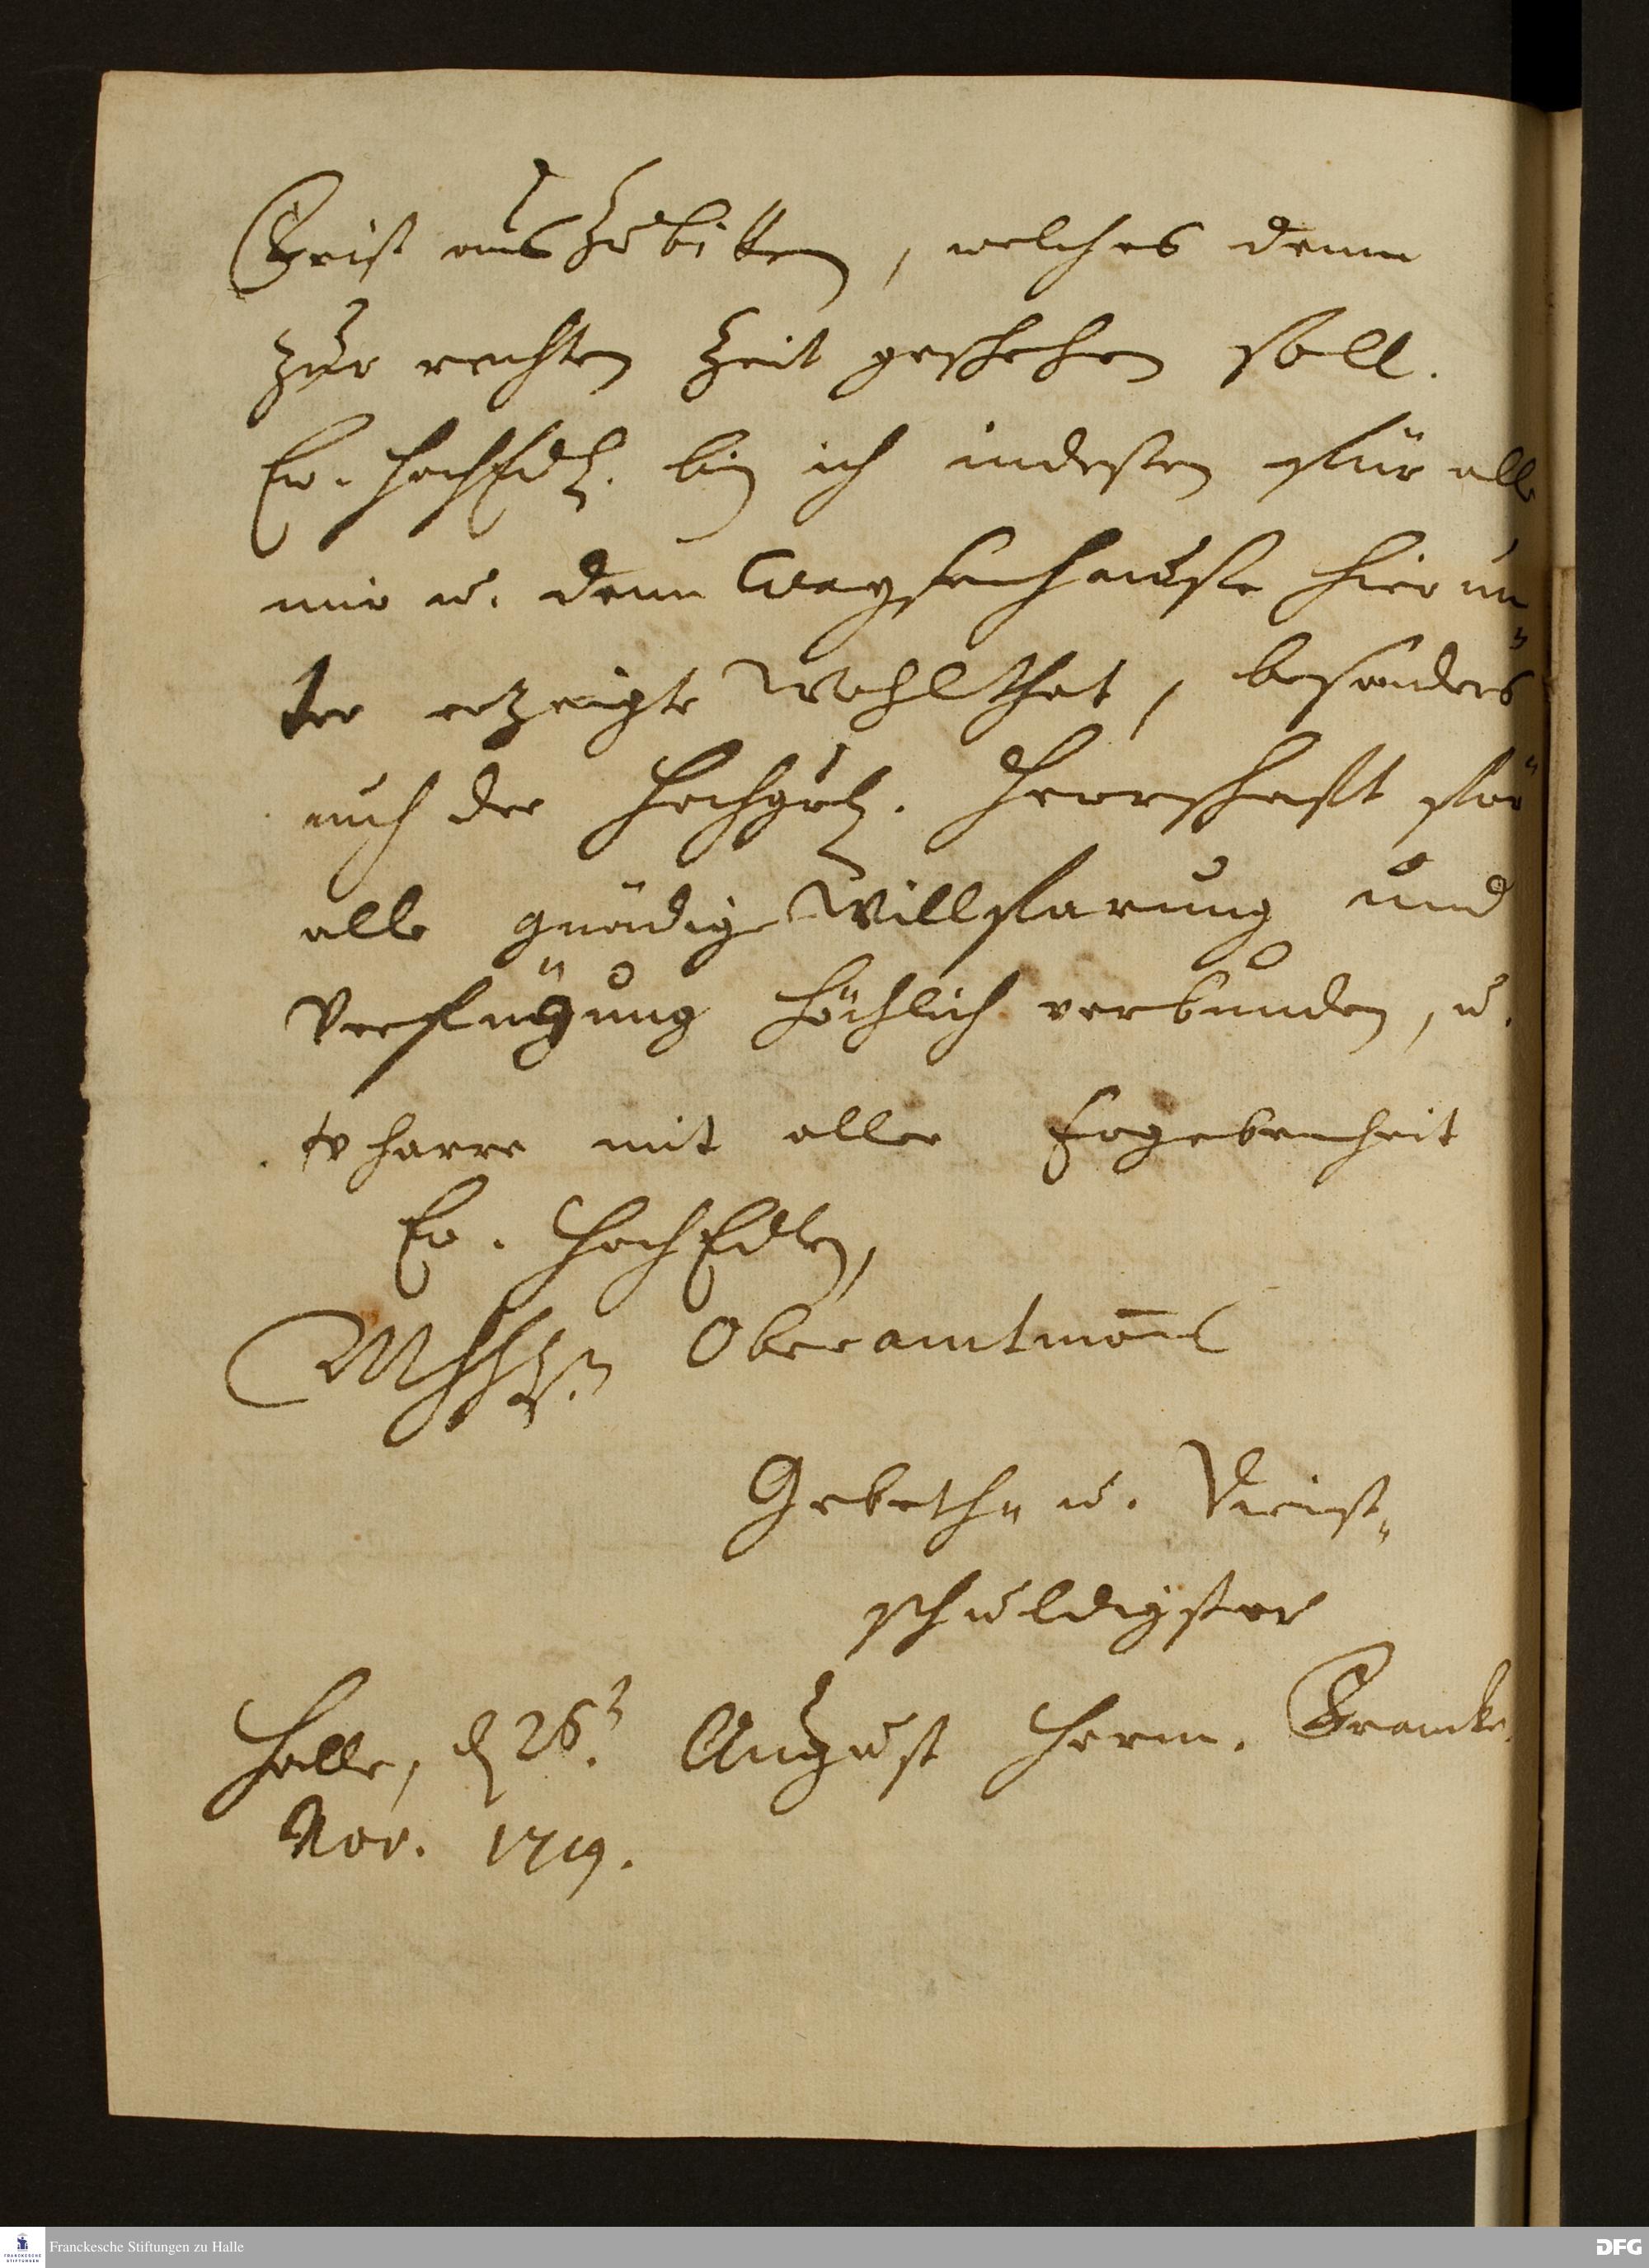 Frist auszubitten, welches denn
zur rechten Zeit geschehen soll.
Ew. HochEdl. bin ich indessen für alle
mir u. dem Waysenhause hierun
ter erzeigte Wohlthat, besonders
auch der Hochgräfl. Herrschafft für
alle gnädige Willfarung und
Verfügung höchlich verbunden, u.
verharre mit aller Ergebenheit
Ew. HochEdlen,
Oberamtmanns
Gebeth- u. Dienst-
schuldigster
Halle, d 26. August Herm. Francke.
Nov. 1719.
Franckesche Stiftungen zu Halle
FRANCKESCHE STIFTUNGEN
DFG